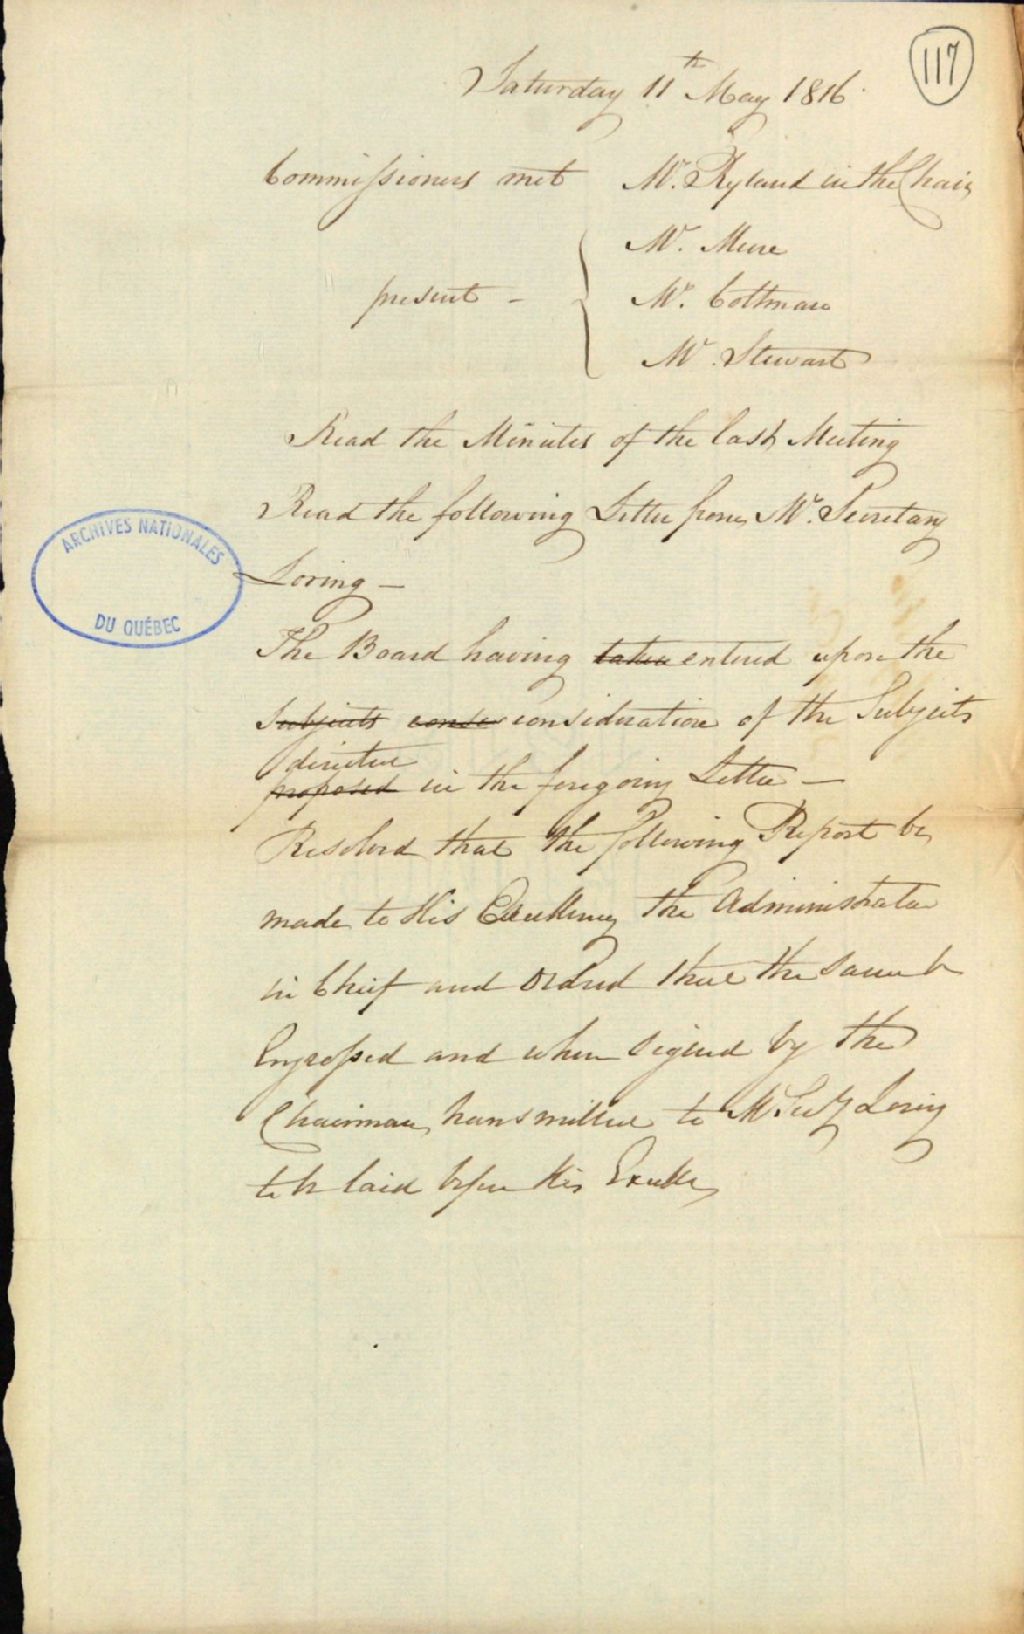 117
Saturday 11th May 1816
Commissioners met Mr. Ryland in the Chair
Mr. Mure
present - Mr. Coltman
Mr. Stewart
Read the Minutes of the last Meeting
Read the following Letter from Mr. Secretary
Loring -
The Board having taken entered upon the
subjects conse consideration of the Subjects
directed
proposed in the foregoing Letter -
Resolved that the following Report be
made to His Excellency the Administrator
in Chief and Ordered that the same be
Engrossed and when signed by the
Chairman transmitted to Mr Secy Loring
to be laid before His Excelly
ARCHIVES NATIONALES
DU QUÉBEC